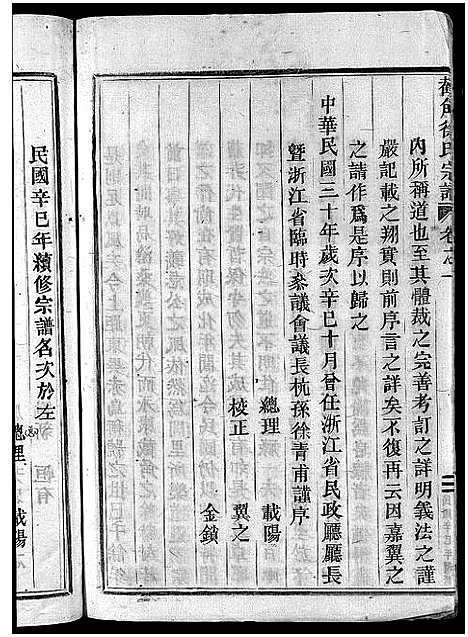 內所稱道也至其體裁之完善考訂之詳明義法之謹
嚴記載之翔實則前序言之詳矣不復再云因嘉翼之
之請作爲是序以歸之
中華民國三十年歲次辛巳十月曾任浙江省民政廳廳長
曁浙江省臨時參議會議長杭孫徐青甫謹序
總理 載陽
校正 翼之
金鎖
民國辛巳年續修宗譜名次於左
總理 載陽